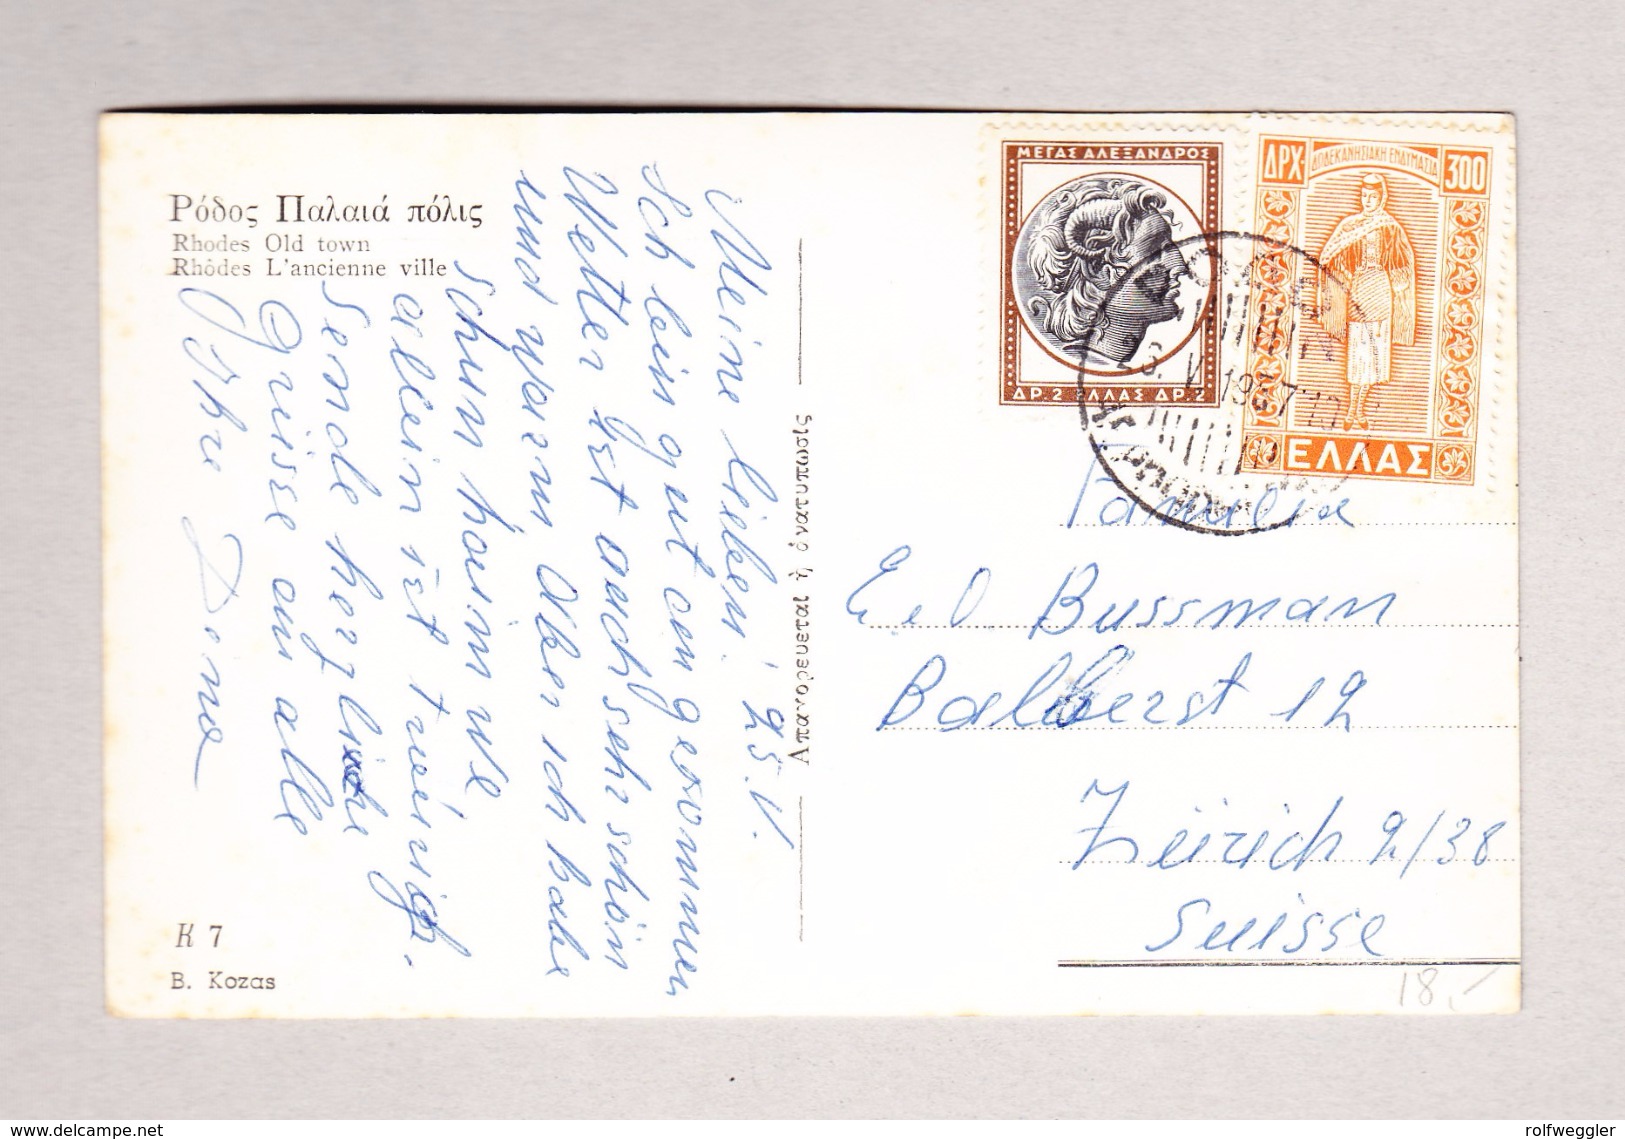 Ρόδος Παλαιά πόλις
Rhodes Old town
Rhôdes L'ancienne ville
Meine lieben! 25.V.
Ich bin gut angekommen
Wetter ist auch sehr schön
und warm aber ich habe
schon
allein ist traurig.
Sende herzliche
Grüsse an alle
Ihre Dina
K 7
B. Kozas
Απαγορευεται ἡ ἀνατυπωσίς
ΜΕΓΑΣ ΑΛΕΞΑΝΔΡΟΣ
ΔΡ.2 ΕΛΛΑΣ ΔΡ.2
ΔΡΧ· ΔΩΔΕΚΑΝΗΣΙΑΚΗ ΕΝΔΥΜΑΣΙΑ 300
ΕΛΛΑΣ
Familie
E. O Bussman
Balberst 12
Zürich 2/38
Suisse
18,-
www.delcampe.net
rolfweggler